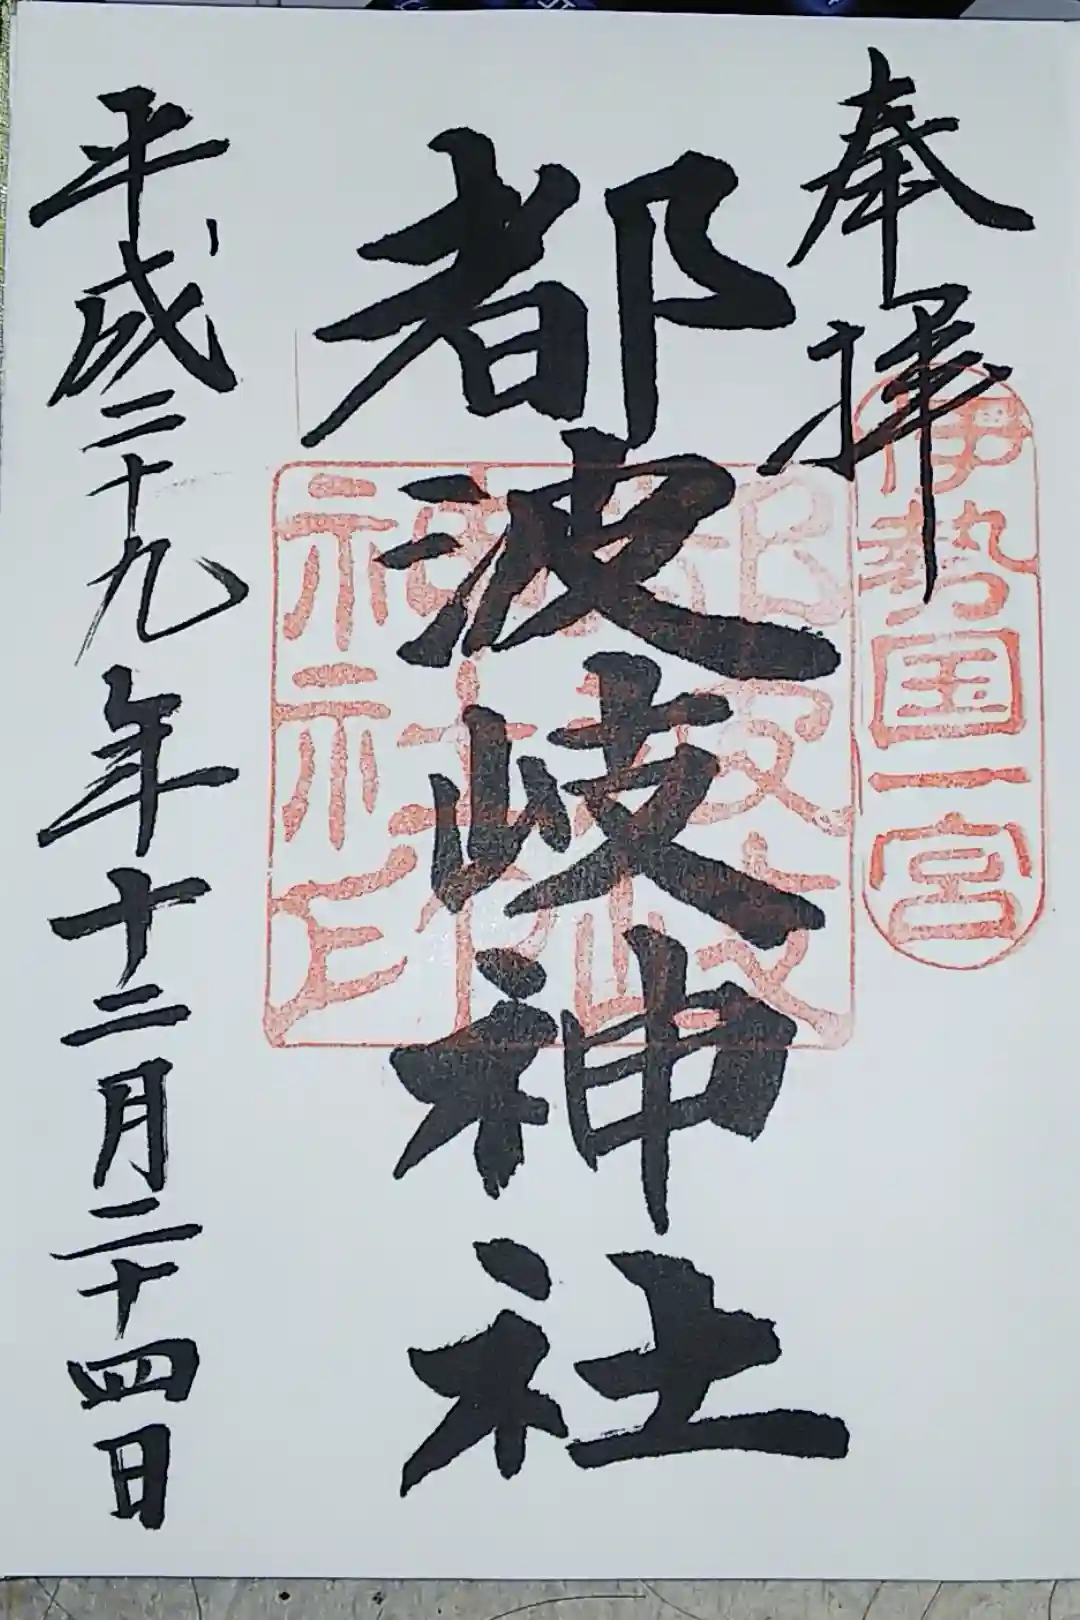 奉拝
伊勢国一宮
都波岐神社
都波岐
神社印
平成二十九年十二月二十四日